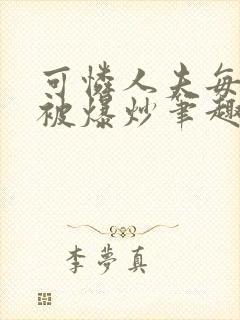 可憐人夫每
被爆炒筆趣
李夢真